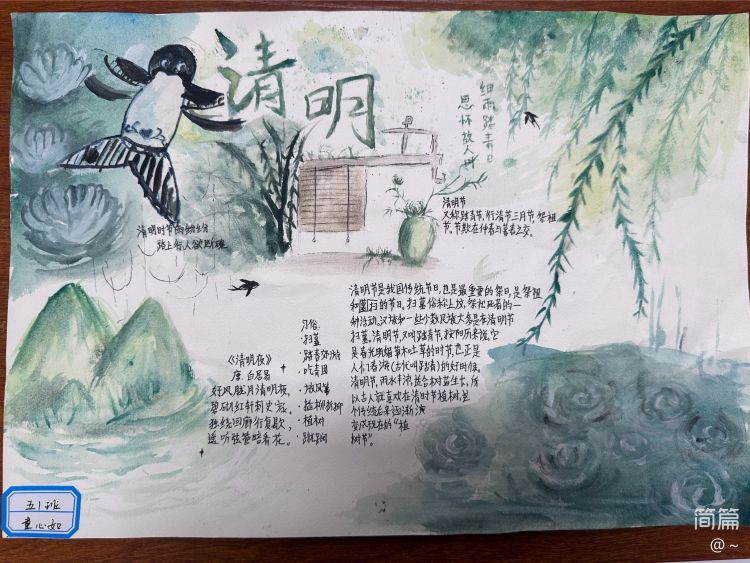 清明
细雨踏青日
思怀故人时
清明时节雨纷纷
路上行人欲断魂
清明节
又称踏青节、行清节、三月节、祭祖
节。节数在仲春与暮春之交。
清明节是我国传统节日,也是最重要的祭日,是祭祖
和扫墓的节日,扫墓俗称上坟,祭祀死者的一
种活动。汉族和一些少数民族大多是在清明节
扫墓。清明节,又叫踏青节,按阳历来说,它
是春光明媚草木吐草的时节,也正是
人们春游(古代叫踏青)的好时候。
清明节,雨水丰沛,故名树苗生长,所
以古人就喜欢在清明时节植树,这
个传统后来逐渐演
变成现在的“植
树节”。
习俗:
·扫墓
·踏青郊游
·吃青团
·放风筝
·插柳折柳
·植树
·蹴鞠
《清明夜》
唐 白居易
好风胧月清明夜,
碧砌红轩刺史家。
独绕回廊行复歇,
遥听弦管暗看花。
五1班
童心如
简篇
@~